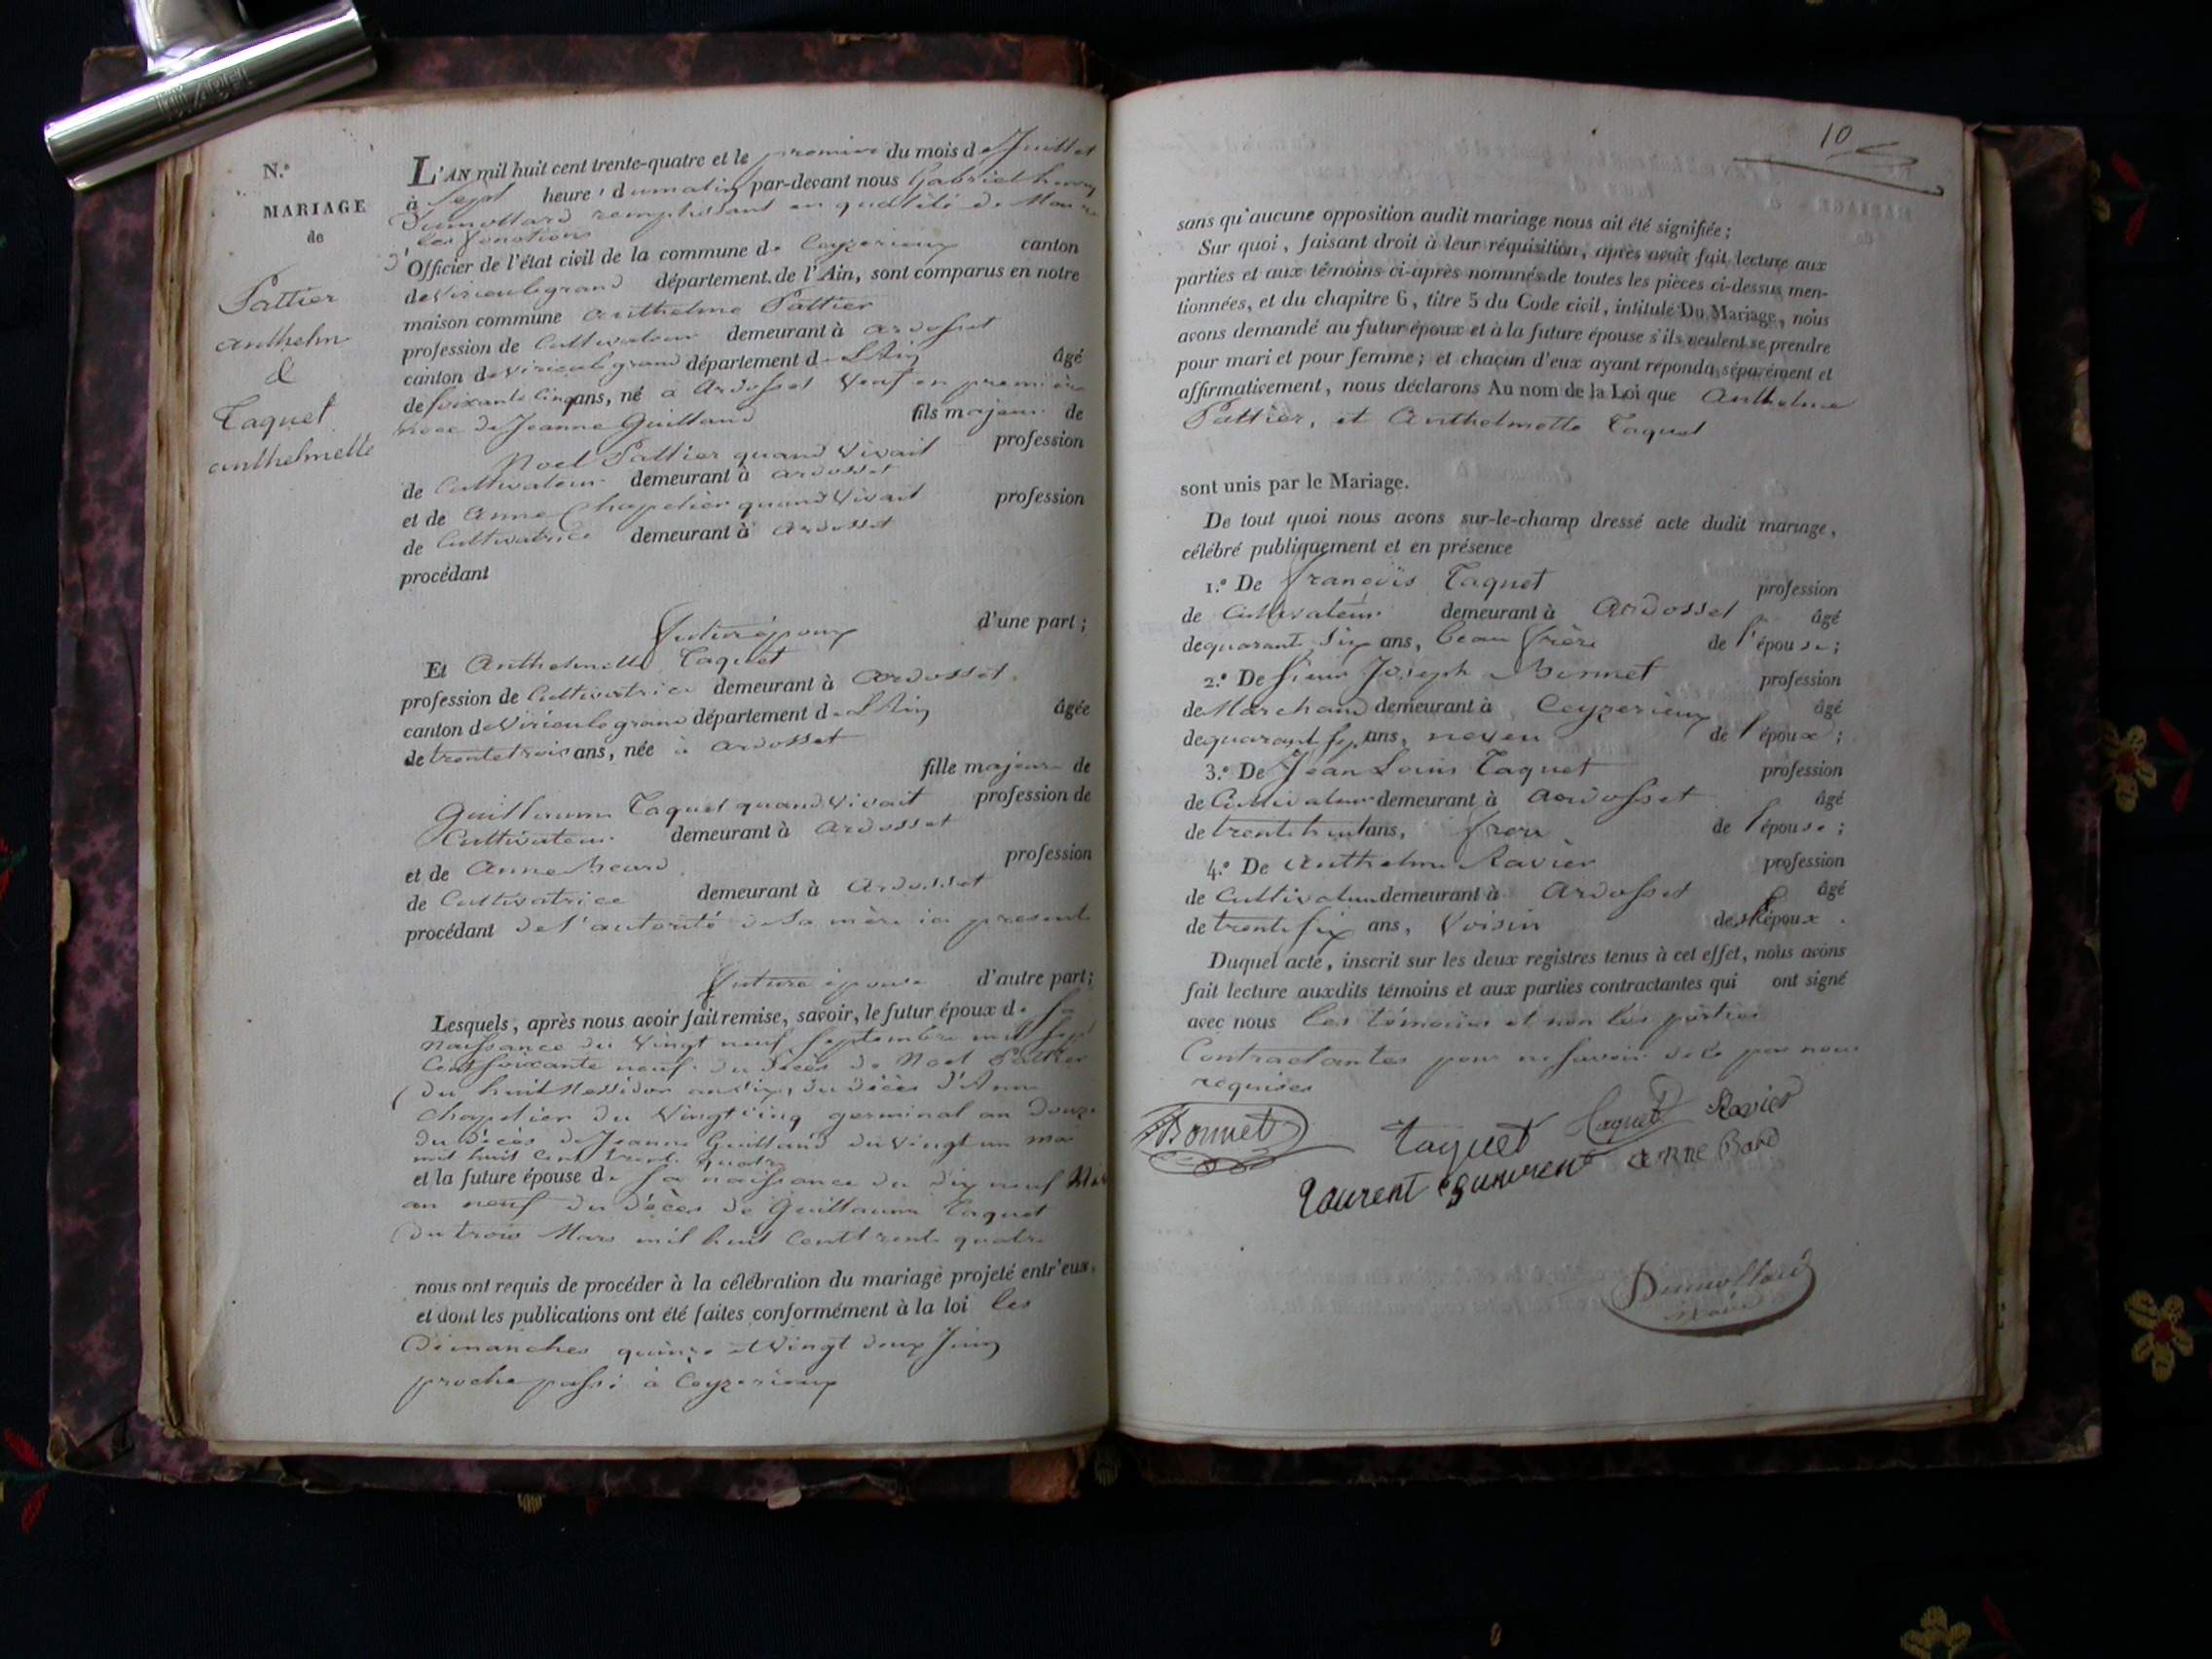 N.º
MARIAGE
de
Pattier
anthelm
&
Taquet
anthelmette
L'AN mil huit cent trente-quatre et le premier du mois de Juillet
à Sept heures du matin par-devant nous Gabriel henry
Dumollard remplissant en qualité de Maire
les fonctions
d'Officier de l'état civil de la commune de Ceyzerieux canton
de Virieu le grand département de l'Ain, sont comparus en notre
maison commune anthelme Pattier
profession de Cultivateur demeurant à ardosset
canton de Virieu le grand département de L'Ain âgé
de soixante cinq ans, né à Ardosset Veuf en première
noce de Jeanne Guilland fils majeur de
Noel Pattier quand vivait profession
de Cultivateur demeurant à ardosset
et de Anne Chapelier quand vivait profession
de Cultivatrice demeurant à ardosset
procédant
futur époux d'une part ;
Et Anthelmette Taquet
profession de Cultivatrice demeurant à Ardosset
canton de Virieu le grand département de L'Ain âgée
de trente trois ans, née à ardosset
fille majeure de
Guillaume Taquet quand vivait profession de
Cultivateur demeurant à ardosset
et de Anne profession
de Cultivatrice demeurant à Ardosset
procédant de l'autorité de sa mère ici presente
future épouse d'autre part ;
Lesquels, après nous avoir fait remise, savoir, le futur époux de sa
naissance du vingt neuf septembre mil sept
cent soixante neuf. du décès de Noel Pattier
du huit Messidor an six, du décès d'Anne
Chapelier du Vingt cinq germinal an douze
du décès de Jeanne Guilland du vingt un mai
mil huit cent trente quatre
et la future épouse de sa naissance du dix neuf
an neuf du décès de Guillaume Taquet
du trois Mars mil huit cent trente quatre
nous ont requis de procéder à la célébration du mariage projeté entr'eux,
et dont les publications ont été faites conformément à la loi les
Dimanches quinze et vingt deux Juin
proche passé à Ceyzerieux
10
sans qu'aucune opposition audit mariage nous ait été signifiée ;
Sur quoi, faisant droit à leur réquisition, après avoir fait lecture aux
parties et aux témoins ci-après nommés de toutes les pièces ci-dessus men-
tionnées, et du chapitre 6, titre 5 du Code civil, intitulé Du Mariage, nous
avons demandé au futur époux et à la future épouse s'ils veulent se prendre
pour mari et pour femme ; et chacun d'eux ayant répondu séparément et
affirmativement, nous déclarons Au nom de la Loi que Anthelme
Pattier, et Anthelmette Taquet
sont unis par le Mariage.
De tout quoi nous avons sur-le-champ dressé acte dudit mariage,
célébré publiquement et en présence
1.º De françois Taquet profession
de Cultivateur demeurant à Ardosset âgé
de quarante six ans, beau frère de l'épouse ;
2.º De sieur Joseph Bonnet profession
de Marchand demeurant à Ceyzerieux âgé
de quarante sept ans, neveu de l'époux ;
3.º De Jean Louis Taquet profession
de Cultivateur demeurant à Ardosset âgé
de trente huit ans, frère de l'épouse ;
4.º De Anthelme Ravier profession
de Cultivateur demeurant à Ardosset âgé
de trente six ans, Voisin de l'époux .
Duquel acte, inscrit sur les deux registres tenus à cet effet, nous avons
fait lecture auxdits témoins et aux parties contractantes qui ont signé
avec nous les témoins et non les parties
Contractantes pour ne savoir de ce par nous
requises
Bonnet Taquet Taquet Ravier
Laurent anne Bard
Dumollard
Maire